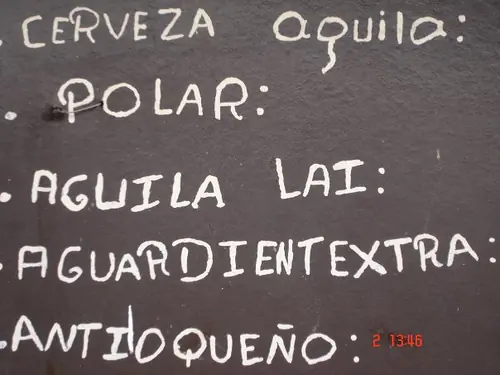 . CERVEZA aguila:
. POLAR:
. AGUILA LAI:
. AGUARDIENTEXTRA:
. ANTIOQUEÑO: 2 13:46